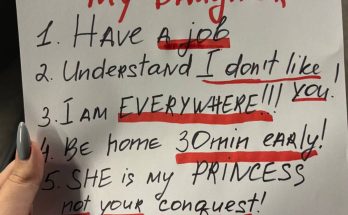 My
1. HAVE a job
2. Understand I don't like you.
3. I AM EVERYWHERE!!!
4. Be home 30min early!
5. SHE is my PRINCESS
not your conquest!